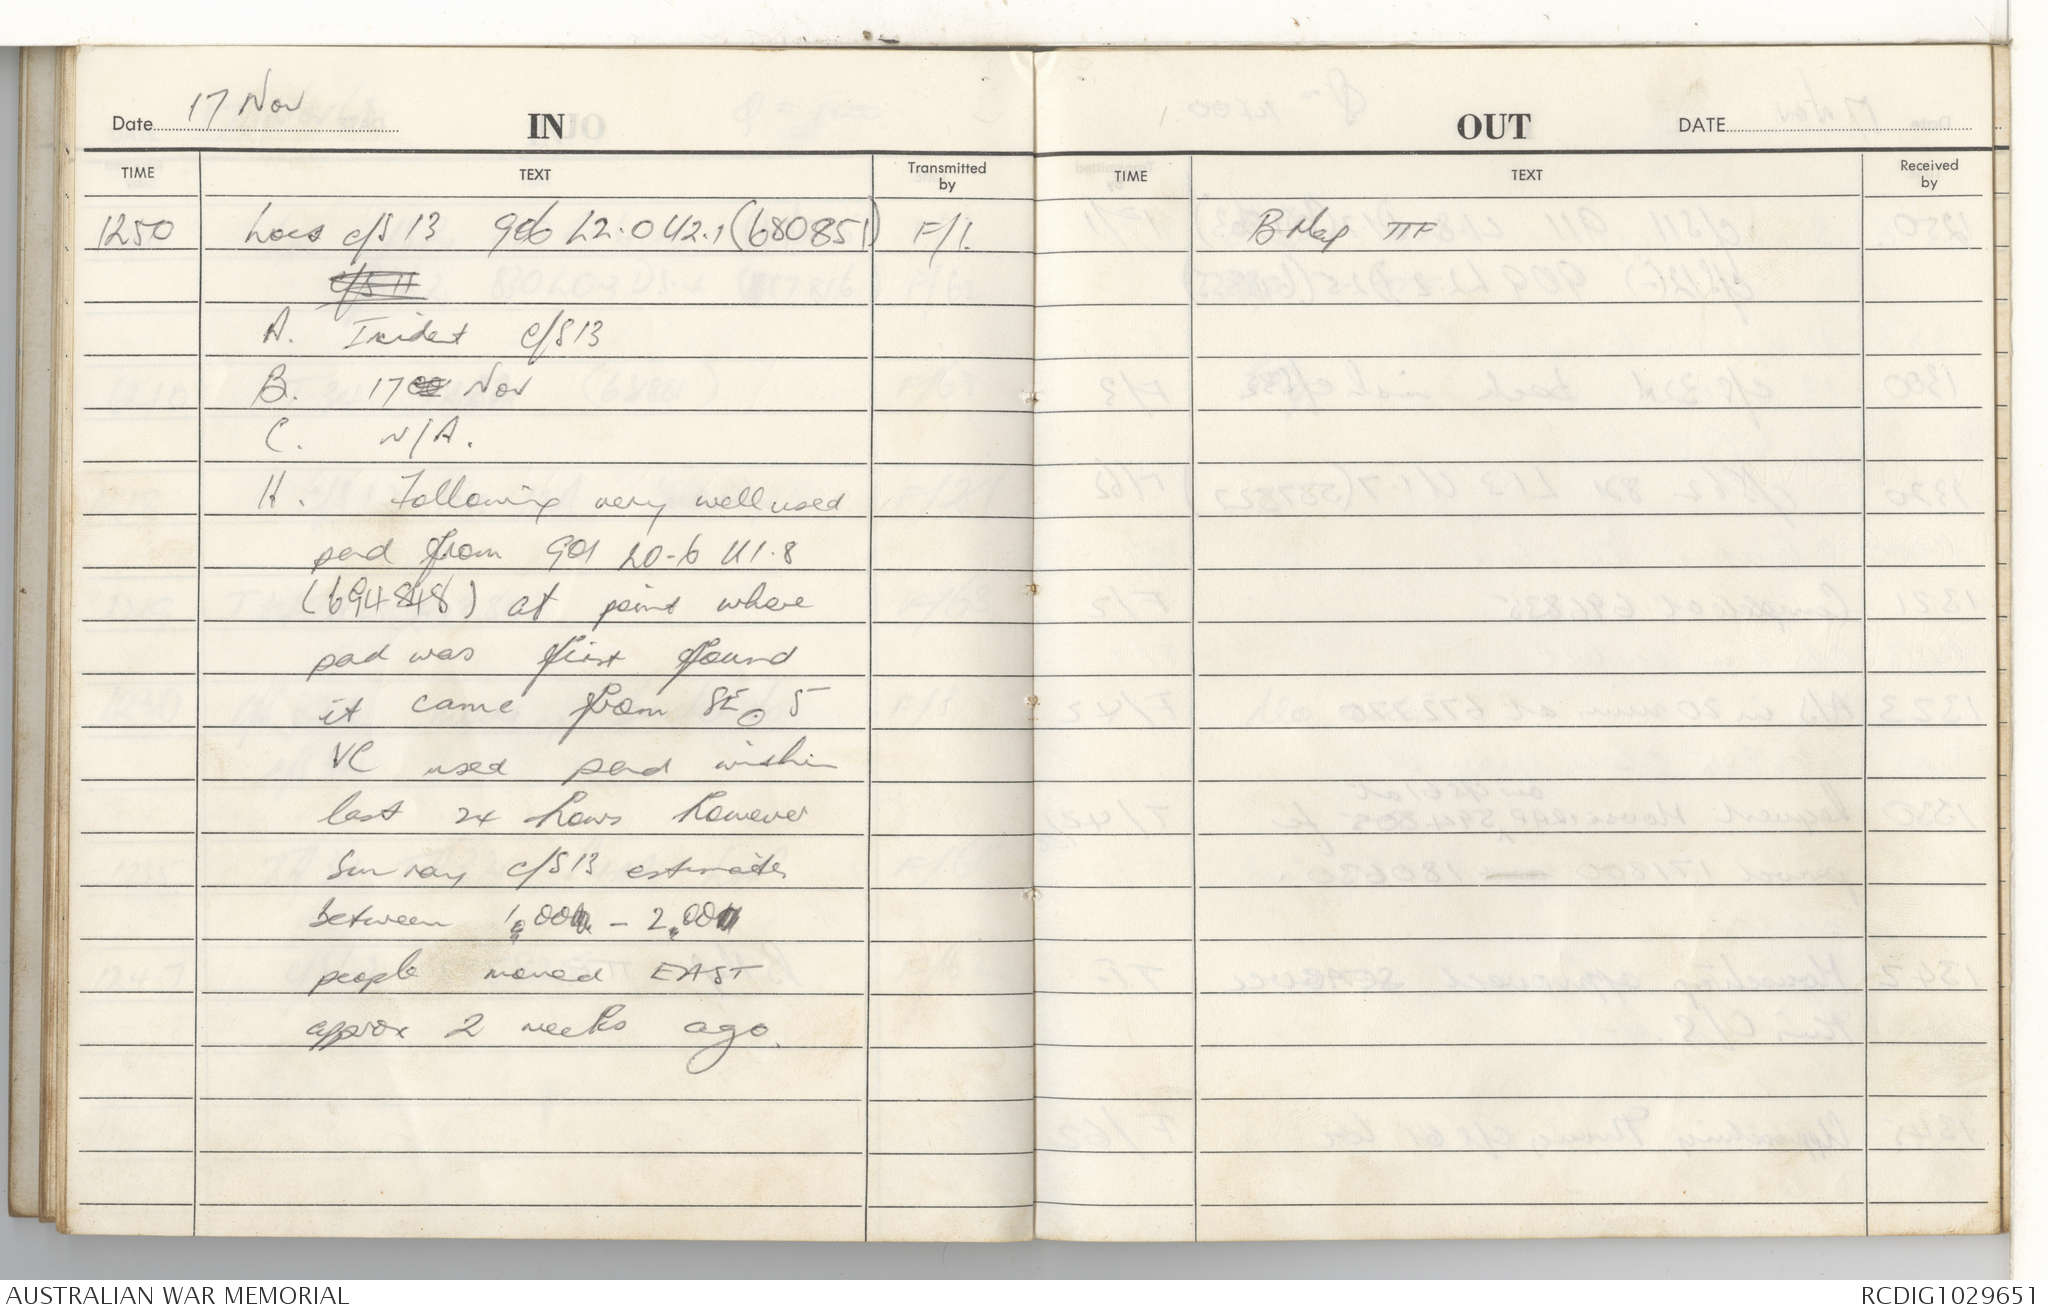 Date 17 Nov
IN
TIME TEXT Transmitted by
1250 Locs c/S 13 906 L2.0 U2.1 (680851) F/1.
c/S 11
A. Incident c/S 13
B. 17 Nov
C. N/A.
H. Following very well used
pad from 901 L0-6 U1.8
(694848) at point where
pad was first found
it came from SE. 5
VC used pad within
last 24 hours however
Sunray c/S 13 estimates
between 1,000 - 2,000
people moved EAST
approx 2 weeks ago.
OUT
DATE
TIME TEXT Received by
B Map
AUSTRALIAN WAR MEMORIAL
RCDIG1029651